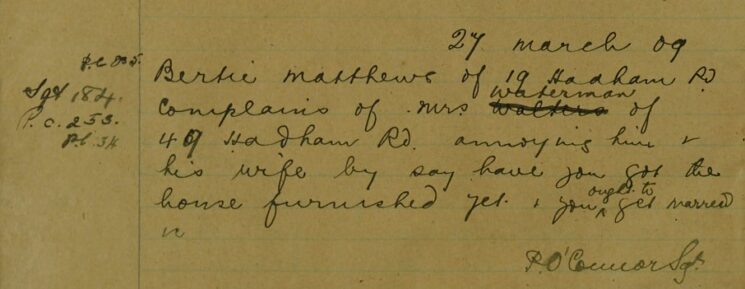 27 march 09
P.C. 85.
Sgt 184.
P.C. 253.
P.C. 34
Bertie matthews of 19 Hadham Rd
Complains of mrs walters waterman of
49 Hadham Rd. annoying him &
his wife by say have you got the
house furnished yet. & you ought to get married
P. O'Connor Sgt.